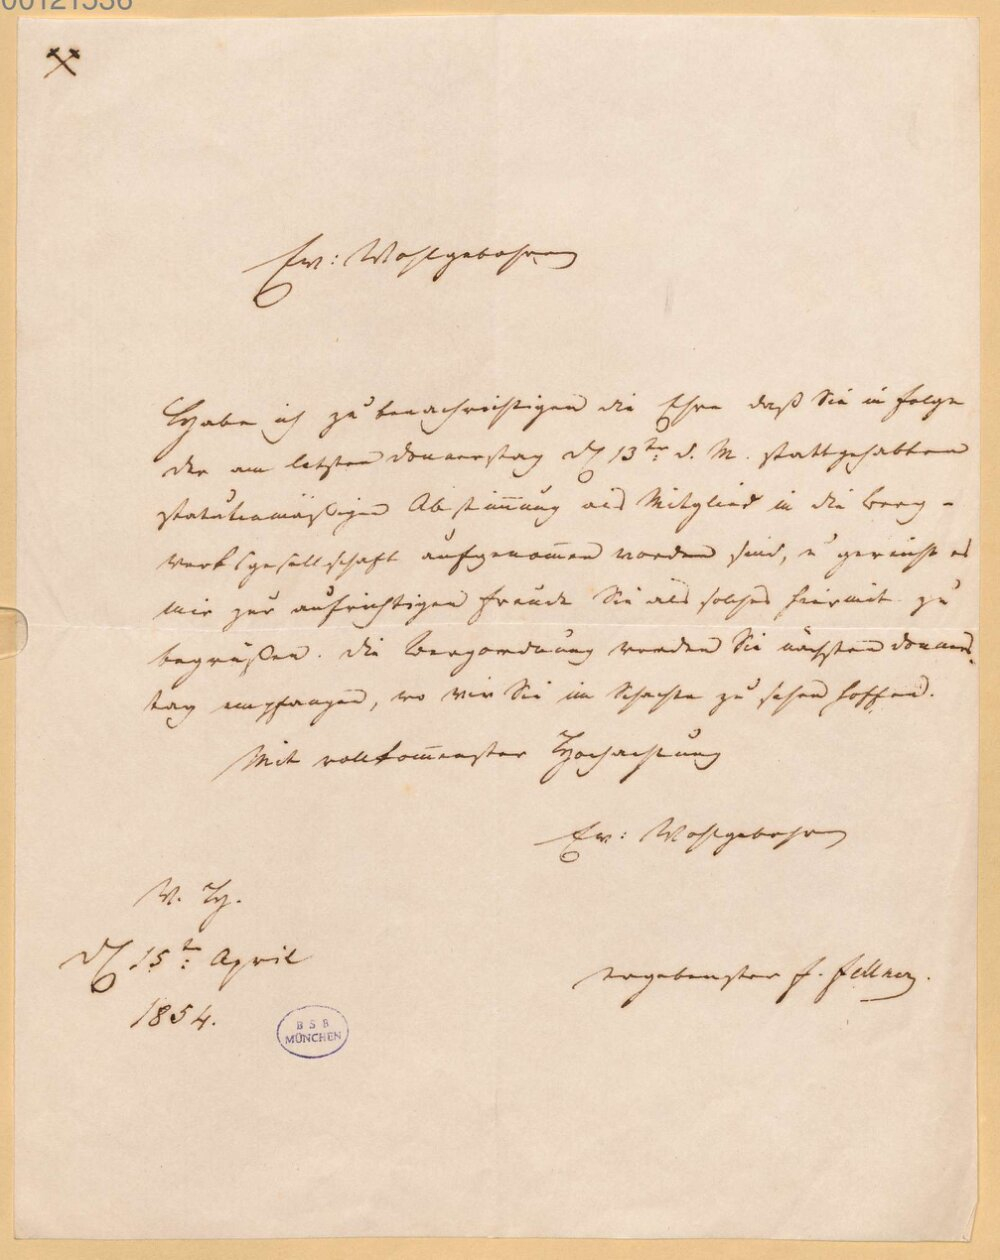 00121536
Ew: Wohlgebohren
Habe ich zu benachrichtigen die Ehre daß Sie in folge
der am letzten Donnerstag d 13ten d. M. stattgehabten
statutenmäßigen Abstim̄ung als Mitglied in die Berg-
werksgesellschaft aufgenom̄en worden sind, u' gereicht es
mir zur aufrichtigen Freude Sie als solches hiermit zu
begrüßen. Die Bergordnung werden Sie nächsten Donners-
tag empfangen, wo wir Sie im Schachte zu sehen hoffen.
Mit vollkom̄enster Hochachtung
Ew: Wohlgebohren
W. H.
d 15t: April
1854.
ergebenster F. Fellner.
BSB
MÜNCHEN